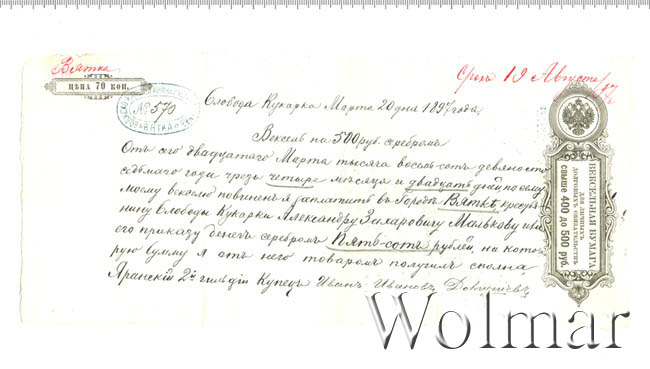 Вятка
Срокъ 19 Августа
ЦѢНА 70 КОП.
№ 570
ВЯТКА
Слобода Кукарка Марта 20 дня 1897 года,
Вексель на 500 руб. серебромъ
Отъ сего двадцатаго Марта тысяча восемь-сотъ девяносто
седьмаго года чрезъ четыре мѣсяца и двадцать дней по сему
моему векселю повиненъ я заплатить въ Городѣ Вяткѣ
нину Слободы Кукарки Александру Захаровичу Малькову или
его приказу денегъ серебромъ Пять-сотъ рублей, на кото-
рую сумму я отъ него товаромъ получилъ сполна
Яранскій 2й гильдіи Купецъ Иванъ Ивановъ
ВЕКСЕЛЬНАЯ БУМАГА
ДЛЯ ЛИЧНЫХЪ
ДОЛГОВЫХЪ ОБЯЗАТЕЛЬСТВЪ
свыше 400 до 500 руб.
Wolmar